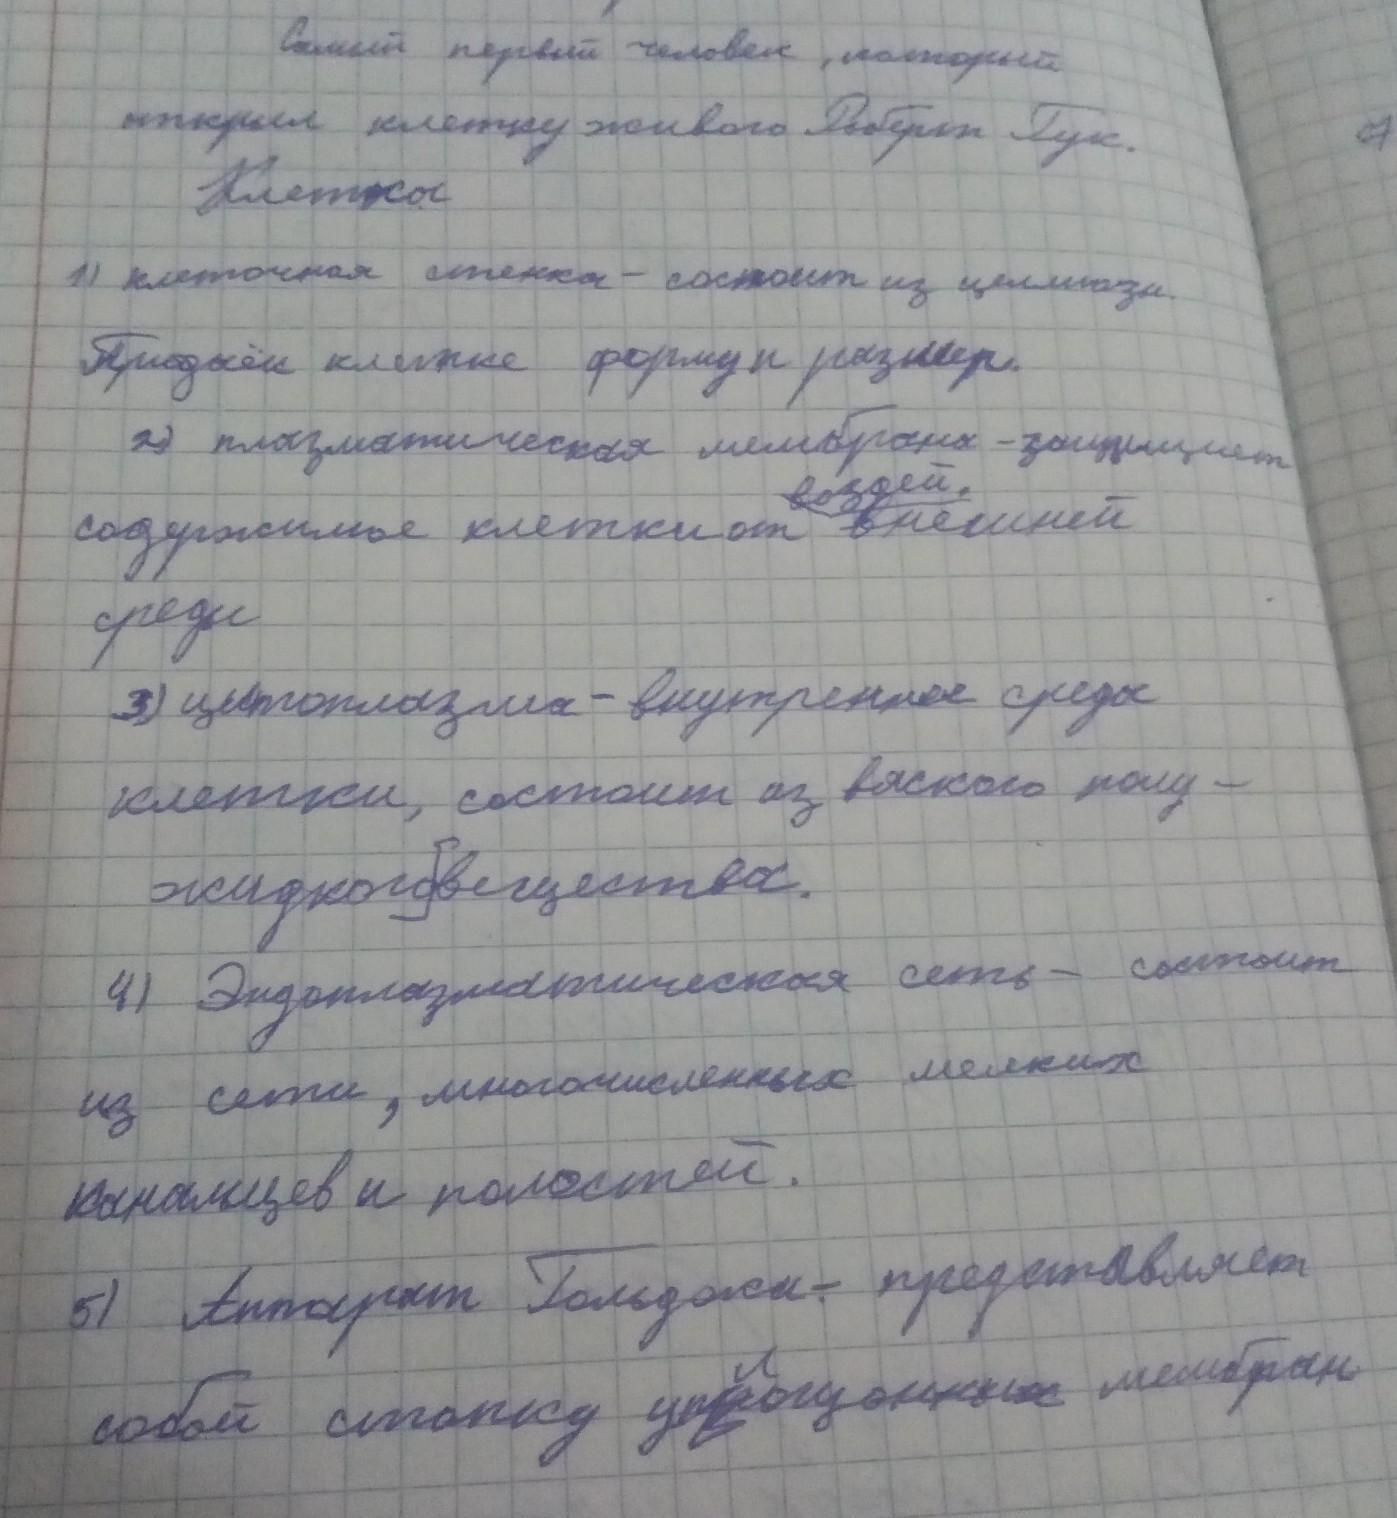 Самый первый человек, который
открыл клетку живого Роберт Гук.
Клетка
1) клеточная стенка - состоит из целлюлозы.
Придаёт клетке форму и размер.
2) плазматическая мембрана - защищает
воздей.
содержимое клетки от внешней
среды
3) цитоплазма - внутренняя среда
клетки, состоит из вяского полу-
жидкого вещества.
4) Эндоплазматическая сеть - состоит
из сети, многочисленных мелких
канальцев и полостей.
5) Аппарат Гольджи - представляет
собой стопку уплощенных мембран